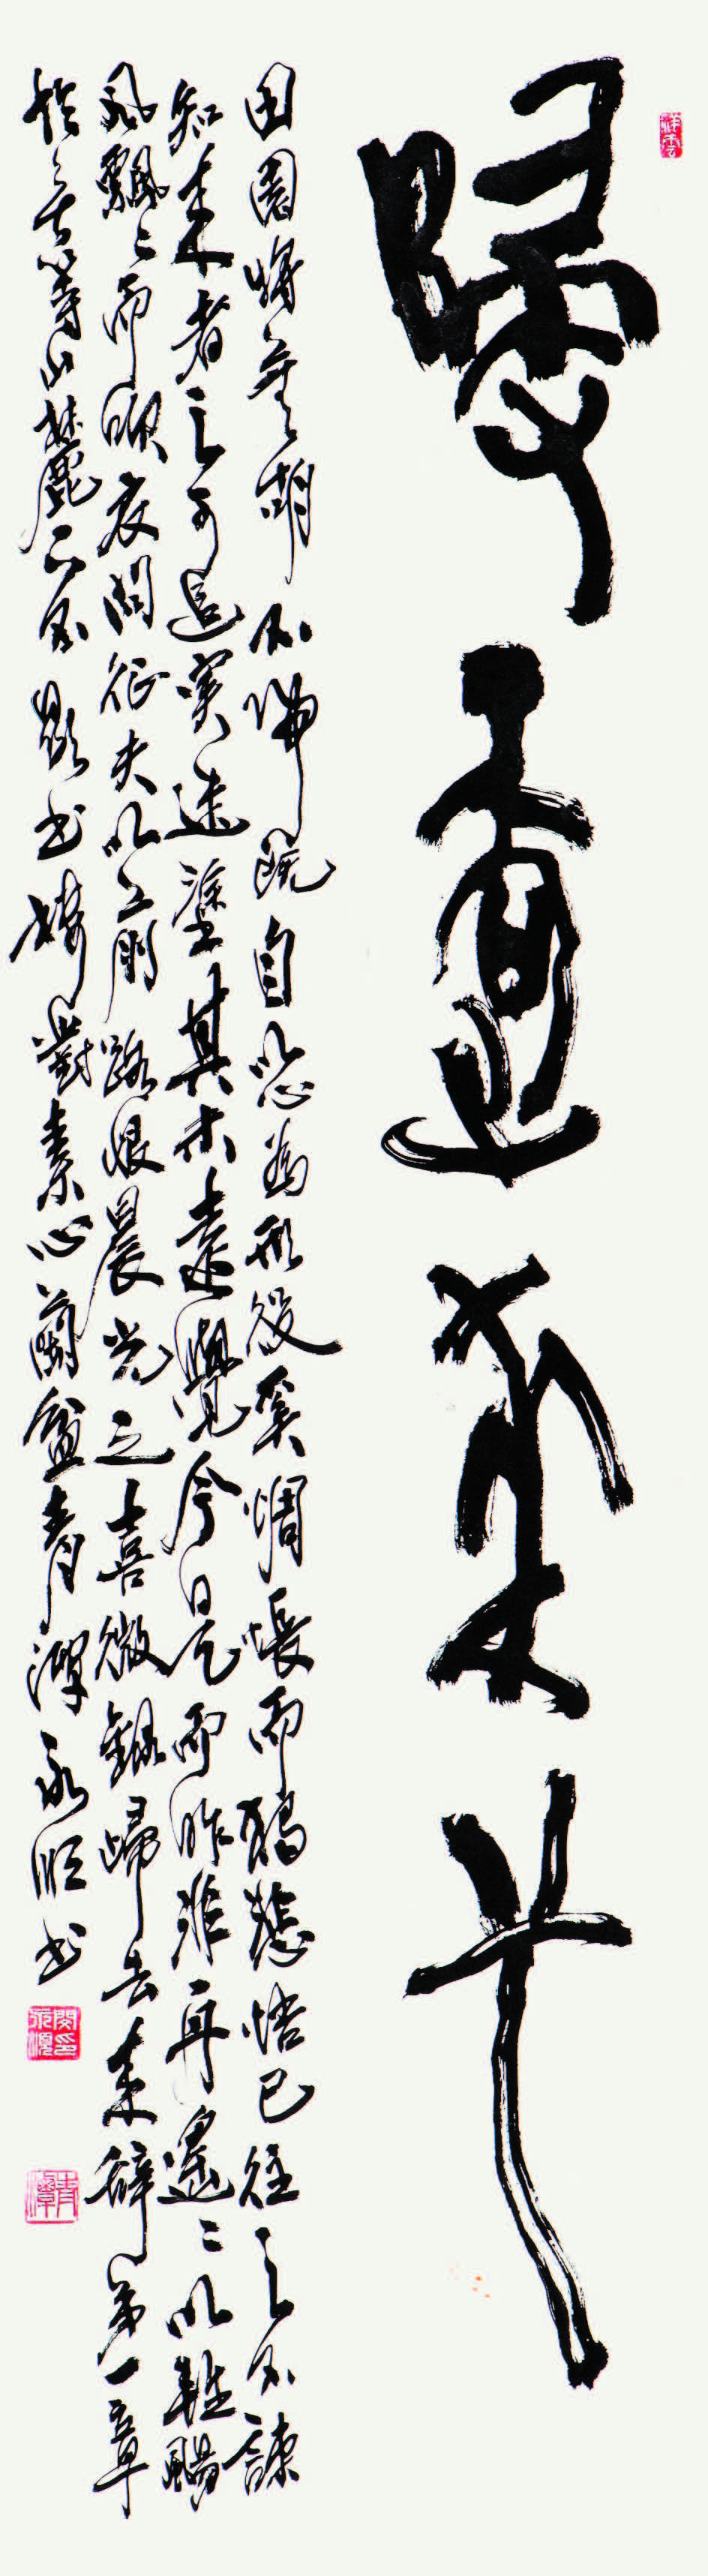 歸去來兮
田園將蕪胡不歸既自以心為形役奚惆悵而獨悲悟已往之不諫
知来者之可追實迷塗其未遠覺今是而昨非舟遙〻以輕颺
風飄〻而吹衣問征夫以前路恨晨光之喜微錄歸去来辭第一章
山林對素心蘭盆青潭永順书
青潭